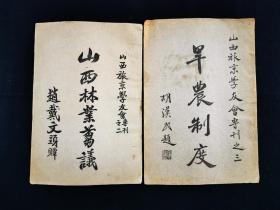 山西旅京學友會專刊之二
山西林業芻議
趙戴文題贉
山西旅京學友會專刊之三
旱農制度
胡漢民題